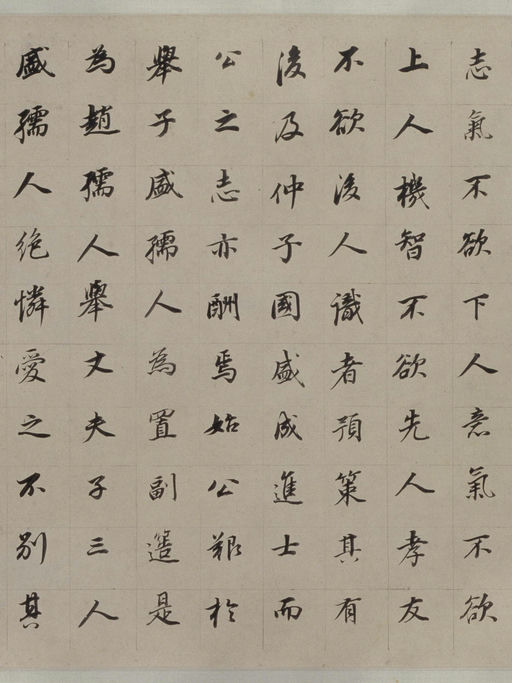 志氣不欲下人意氣不欲
上人機智不欲先人孝友
不欲後人識者預策其有
後及仲子國盛成進士而
公之志亦酬焉始公艱於
舉子盛孺人為置副簉是
為趙孺人舉丈夫子三人
盛孺人絶憐愛之不别其